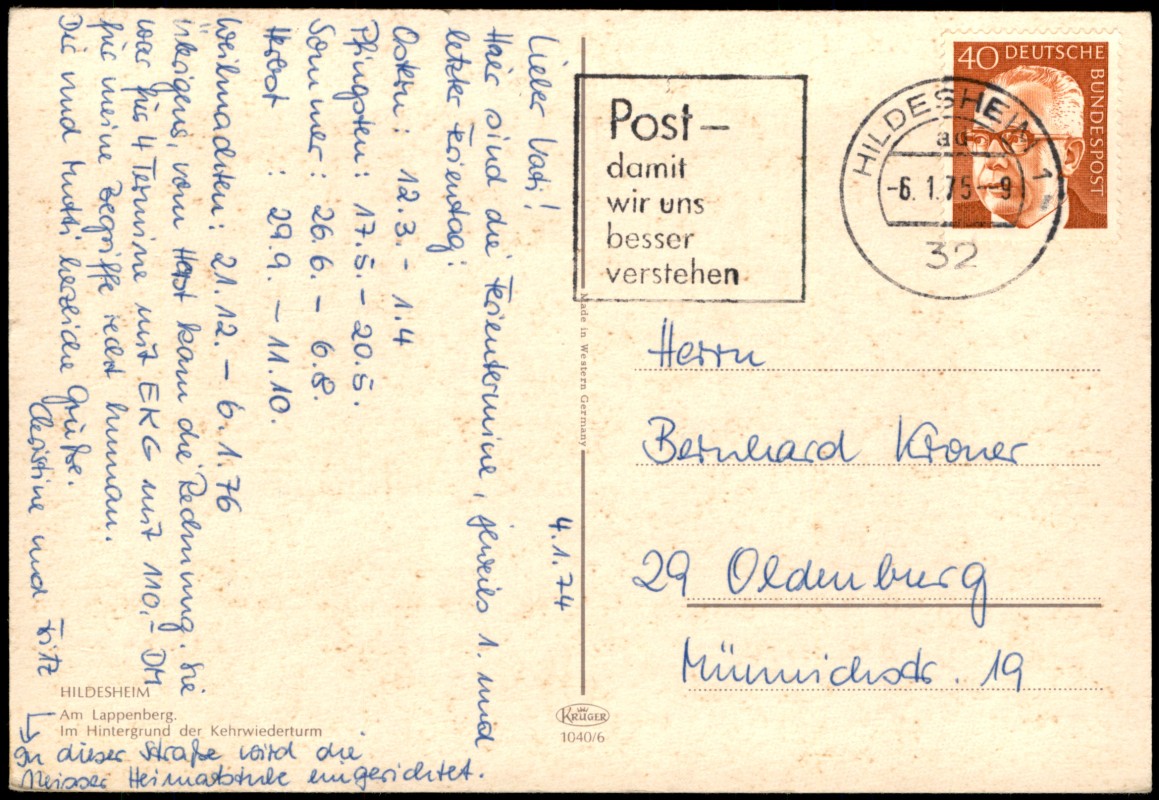 4.1.74
Lieber Vati!
Hier sind die Ferientermine, jeweils 1. und
letzter Ferientag:
Ostern: 12.3. - 1.4
Pfingsten: 17.5. - 20.5.
Sommer: 26.6. - 6.8.
Herbst: 29.9. - 11.10.
Weihnachten: 21.12. - 6.1.76
Übrigens, vom Horst kam die Rechnung. Sie
war für 4 Termine mit EKG mit 110.- DM
für meine Begriffe recht human.
Dir und Mutti herzliche Grüße.
Christine und Fritz
HILDESHEIM
Am Lappenberg.
Im Hintergrund der Kehrwiederturm
In dieser Straße wird die
Neisser Heimatstube eingerichtet.
Made in Western Germany
KRÜGER
1040/6
Post-
damit
wir uns
besser
verstehen
HILDESHEIM 1
ad
-6.1.75-9
32
40 DEUTSCHE
BUNDESPOST
Herrn
Bernhard Kroner
29 Oldenburg
Münnichstr. 19